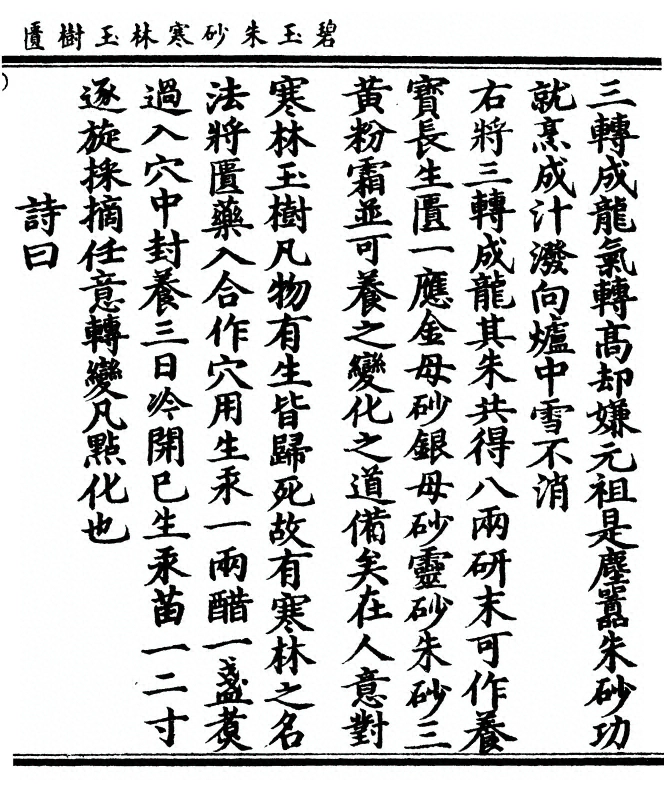 碧玉朱砂寒林玉樹匱
三轉成龍氣轉髙却嫌元祖是塵囂朱砂功
就烹成汁潑向爐中雪不消
右將三轉成龍其朱共得八兩研末可作養
寳長生匱一應金母砂銀母砂靈砂朱砂三
黄粉霜並可養之變化之道備矣在人意對
寒林玉樹凡物有生皆歸死故有寒林之名
法將匱藥入合作穴用生汞一兩醋一盞煑
過入穴中封養三日冷開巳生汞苗一二寸
逐旋採摘任意轉變凡點化也
詩曰